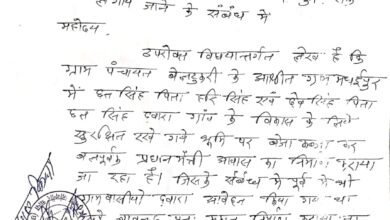 जाने के संबंध में
महोदय,
उपरोक्त विषयान्तर्गत लेख है कि
ग्राम पंचायत के आश्रीत ग्राम
में छत्र सिंह पिता हरि सिंह एवं देव सिंह पिता
छत्र सिंह द्वारा गांव के विकास के लिये
सुरक्षित रखे गये भूमि पर बेजा कब्जा कर
बलपूर्वक प्रधानमंत्री आवास का निर्माण कराया
जा रहा है। जिसके संबंध में पूर्व में भी
ग्रामवासीयों द्वारा आवेदन किया गया था